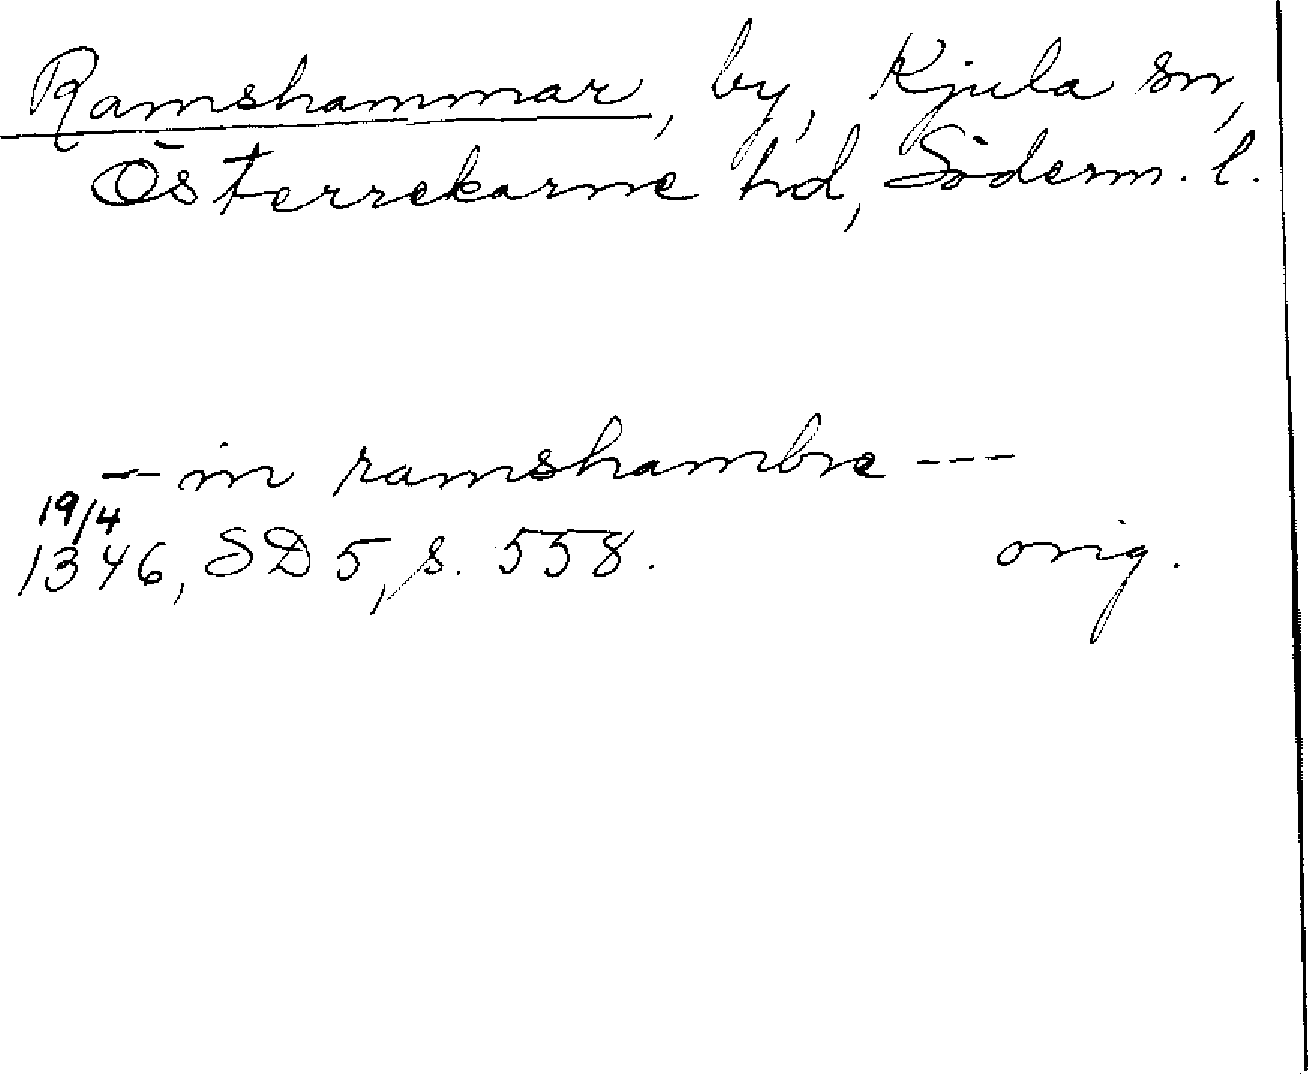 Ramshammar, by, Kjula sn,
Österrekarne hd, Söderm. l.
-- in ramshambre ---
19/4
1346, SD 5, s. 558. orig.